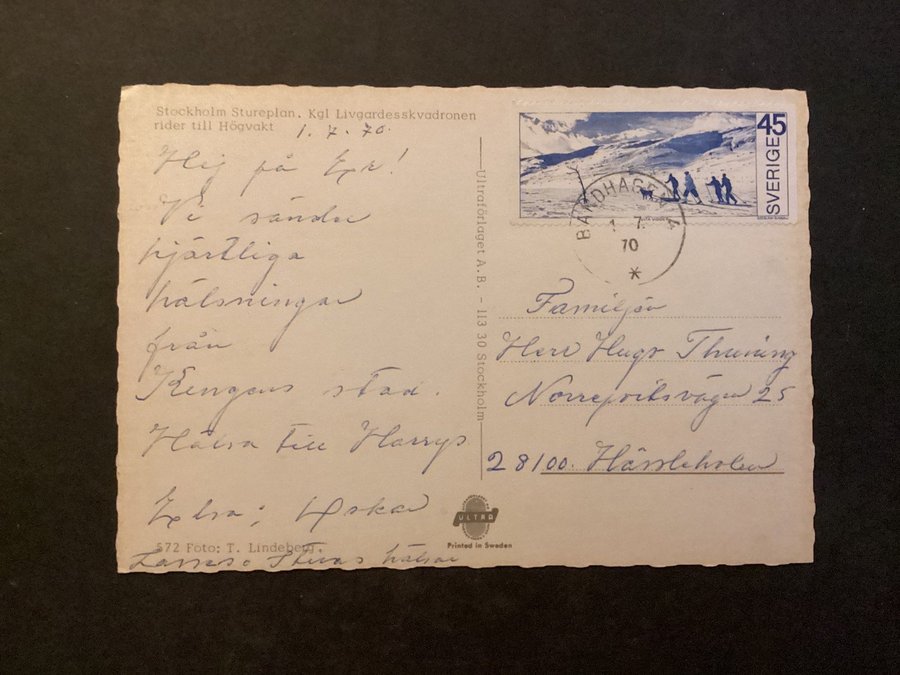 Stockholm Stureplan. Kgl Livgardesskvadronen
rider till Högvakt 1.7.70.
Hej på Er!
Vi sända
hjärtliga
hälsningar
från
Kungens stad.
Hälsa till Harrys
Oskar
572 Foto: T. Lindeberg.
hälsar
Ultraförlaget A.B. - 113 30 Stockholm
ULTRA
Printed in Sweden
SVERIGE 45
BANDHAGEN 4
1 7.
70
*
Familjen
Herr Hugo Thuning
25
28100. Hässleholm